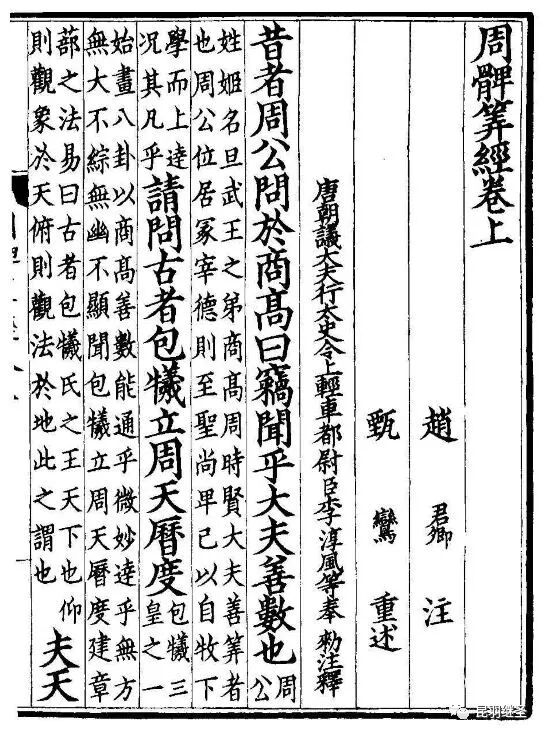 周髀筭經卷上
趙 君卿 注
甄 鸞 重述
唐朝議大夫行太史令上輕車都尉臣李淳風等奉 勑注釋
昔者周公問於商高曰竊聞乎大夫善數也周公
姓姬名旦武王之弟商高周時賢大夫善筭者
也周公位居冢宰德則至聖尚卑己以自牧下
學而上達况其凡乎請問古者包犧立周天曆度包犧三皇之一
始畫八卦以商高善數能通乎微妙達乎無方
無大不綜無幽不顯聞包犧立周天曆度建章
蔀之法易曰古者包犧氏之王天下也仰
則觀象於天俯則觀法於地此之謂也夫天
昆羽继圣